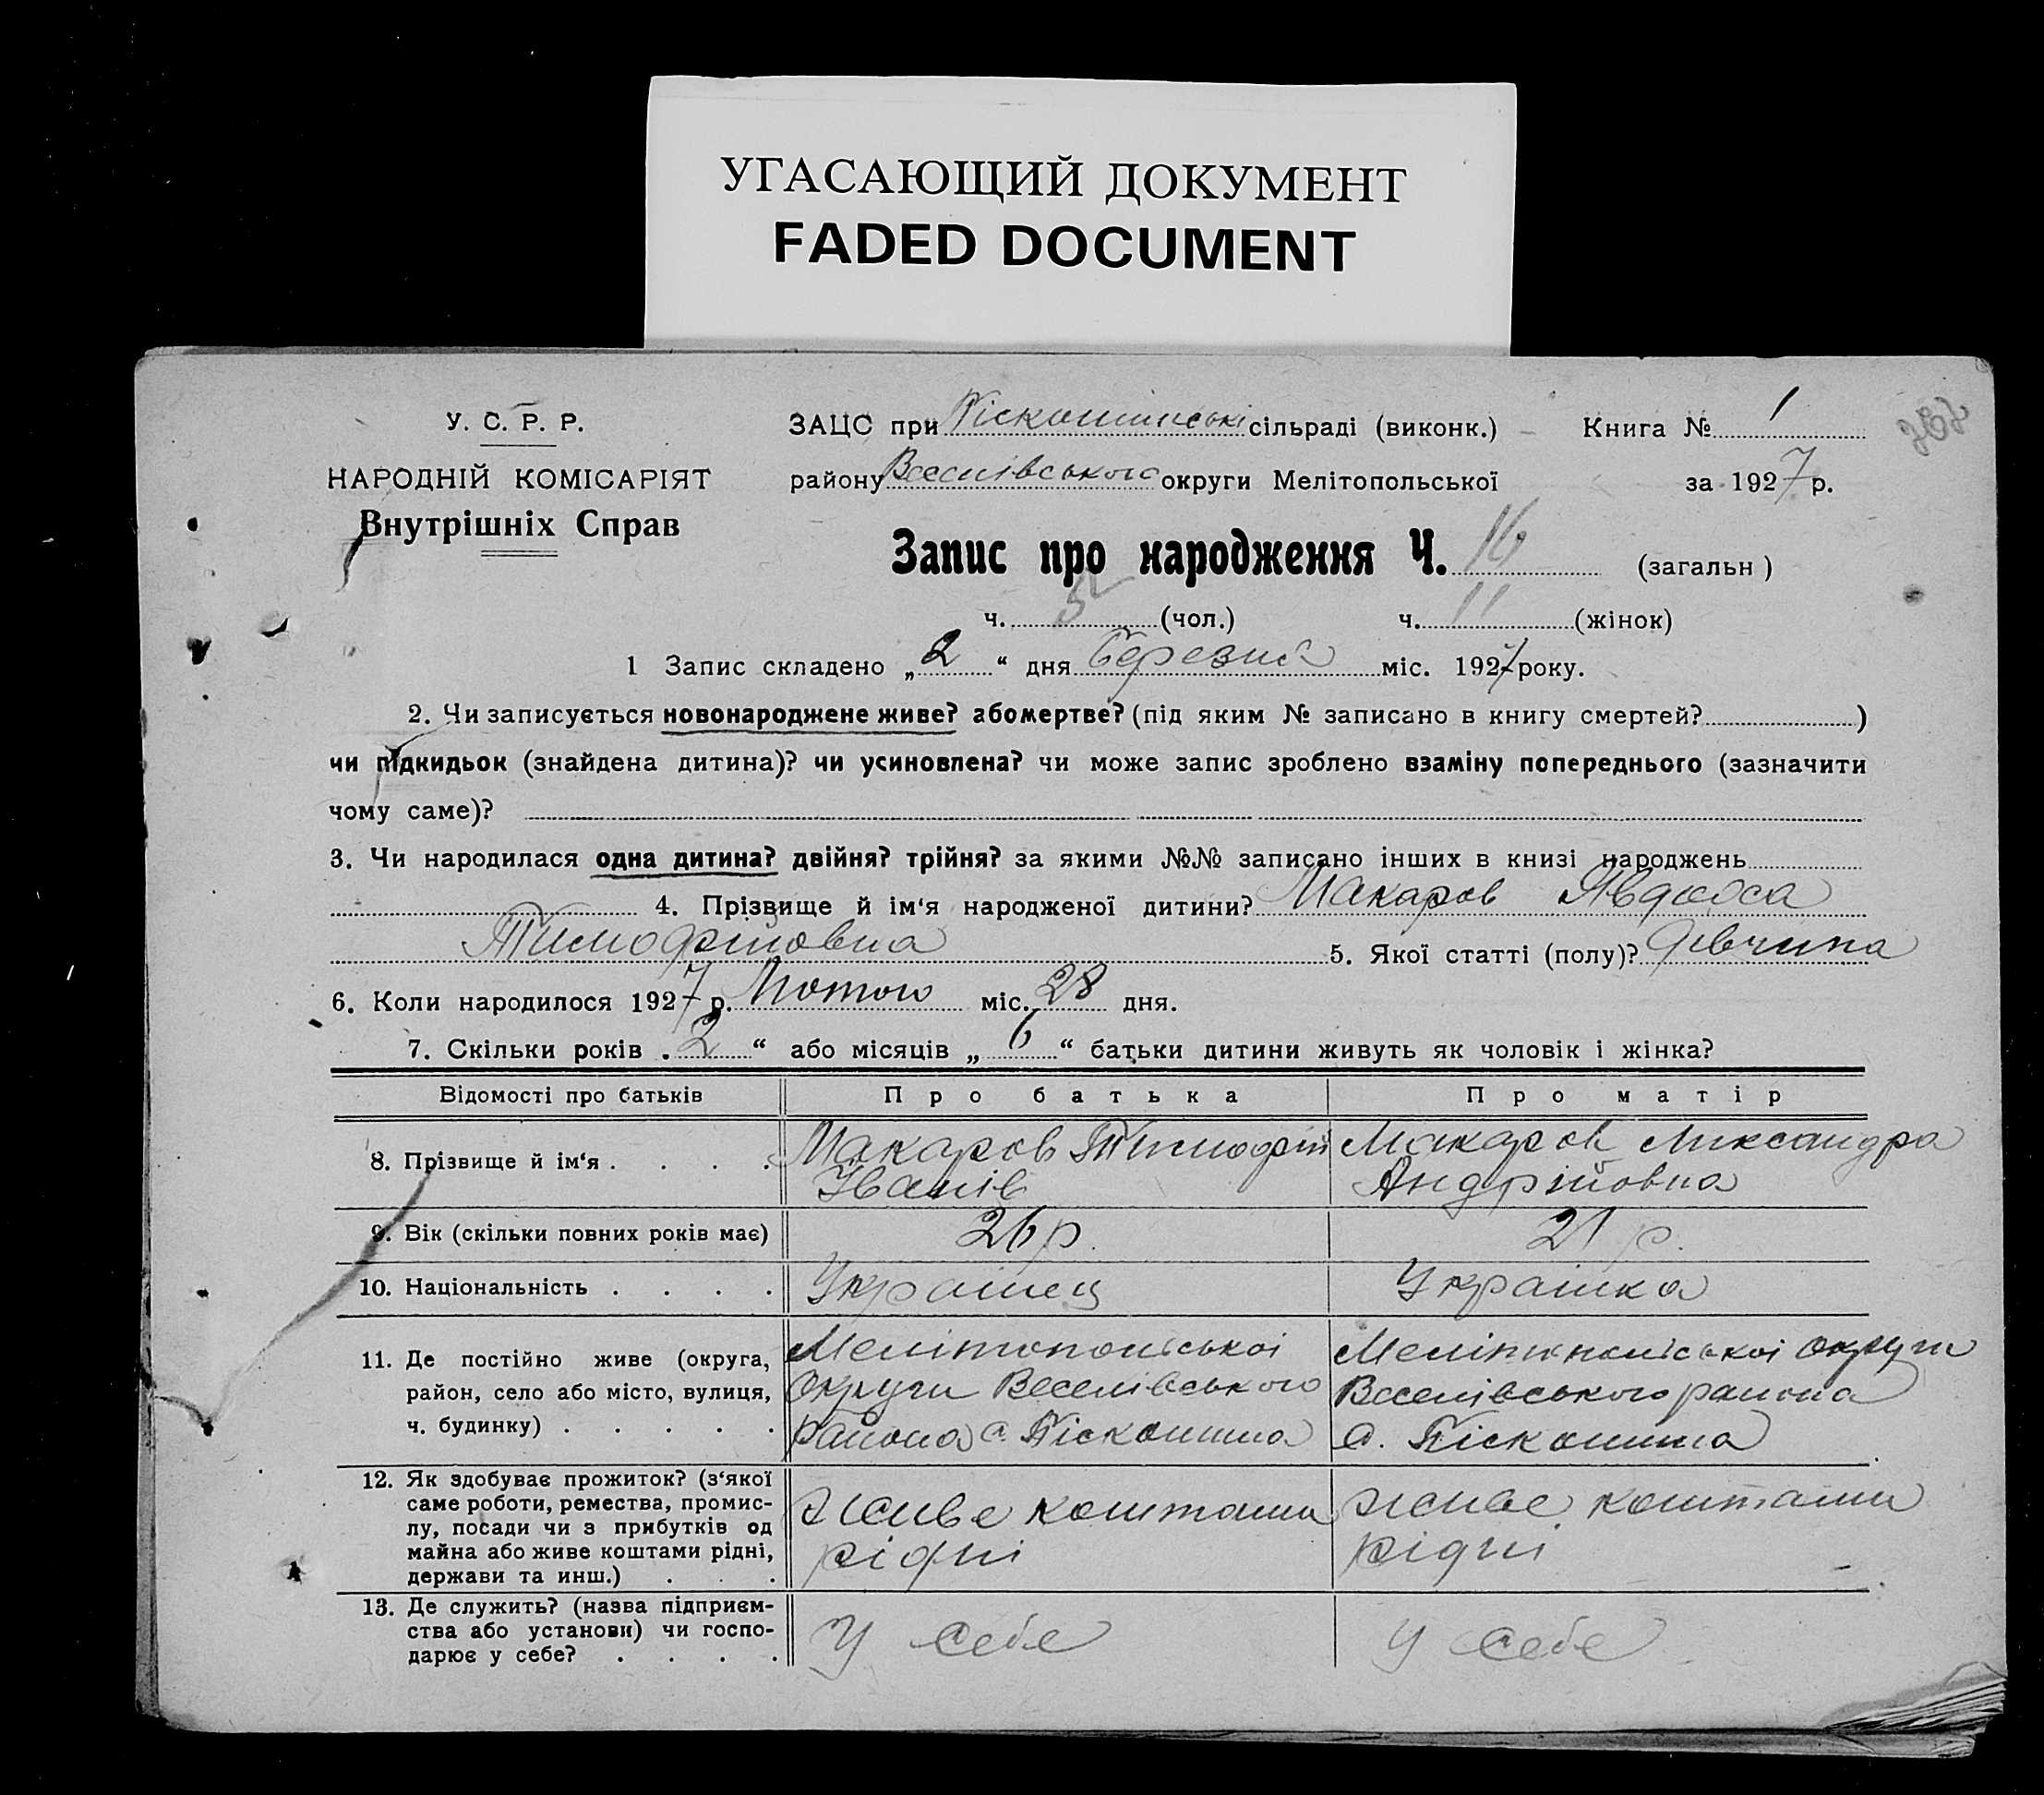 УГАСАЮЩИЙ ДОКУМЕНТ
FADED DOCUMENT
У. С. Р. Р.
НАРОДНІЙ КОМІСАРІЯТ
Внутрішніх Справ
ЗАЦС при Піскошинські сільраді (виконк.) Книга № 1
району Веселівського округи Мелітопольської за 1927 р.
Запис про народження Ч. 16 (загальн)
ч. 5 (чол.) ч. 11 (жінок)
1 Запис складено „2“ дня Березня міс. 1927 року.
2. Чи записується новонароджене живе? або мертве? (під яким № записано в книгу смертей? )
чи підкидьок (знайдена дитина)? чи усиновлена? чи може запис зроблено взаміну попереднього (зазначити
чому саме)?
3. Чи народилася одна дитина? двійня? трійня? за якими №№ записано інших в книзі народжень
4. Прізвище й ім‘я народженої дитини? Макаров Явдоха
Тимофійовна 5. Якої статті (полу)? дівчина
6. Коли народилося 1927 р. Лютого міс. 28 дня.
7. Скільки років „2“ або місяців „6“ батьки дитини живуть як чоловік і жінка?
Відомості про батьків Про батька Про матір
8. Прізвище й ім‘я . . . . Макаров Тимофій Макаров Ликсандра
Іванів Андрійовна
9. Вік (скільки повних років має) 26 р. 21 р.
10. Національність . . . . Украінец Украінка
11. Де постійно живе (округа, Мелітопольськоі Мелітопольськоі округи
район, село або місто, вулиця, округи Веселівського Веселівського района
ч. будинку) . . . . . района с. Піскошина с. Піскошина
12. Як здобуває прожиток? (з‘якої
саме роботи, ремества, промис- живе коштами живе коштами
лу, посади чи з прибутків од
майна або живе коштами рідні, рідні рідні
держави та инш.) . . .
13. Де служить? (назва підприєм-
ства або установи) чи госпо- У себе у себе
дарює у себе? . . . .